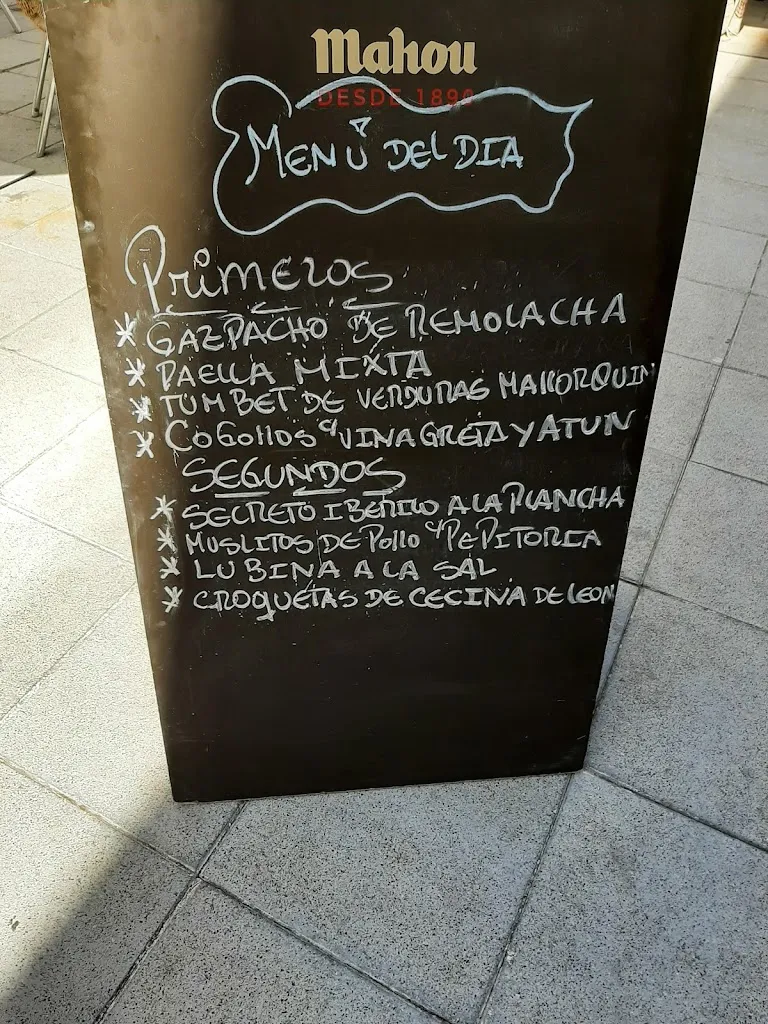 Mahou
DESDE 1890
MENÚ DEL DIA
PRIMEROS
* GAZPACHO DE REMOLACHA
* PAELLA MIXTA
* TUMBET DE VERDURAS MALLORQUIN
* COGOLLOS C/ VINAGRETA Y ATUN
SEGUNDOS
* SECRETO IBERICO A LA PLANCHA
* MUSLITOS DE POLLO C/ PEPITORIA
* LUBINA A LA SAL
* CROQUETAS DE CECINA DE LEON